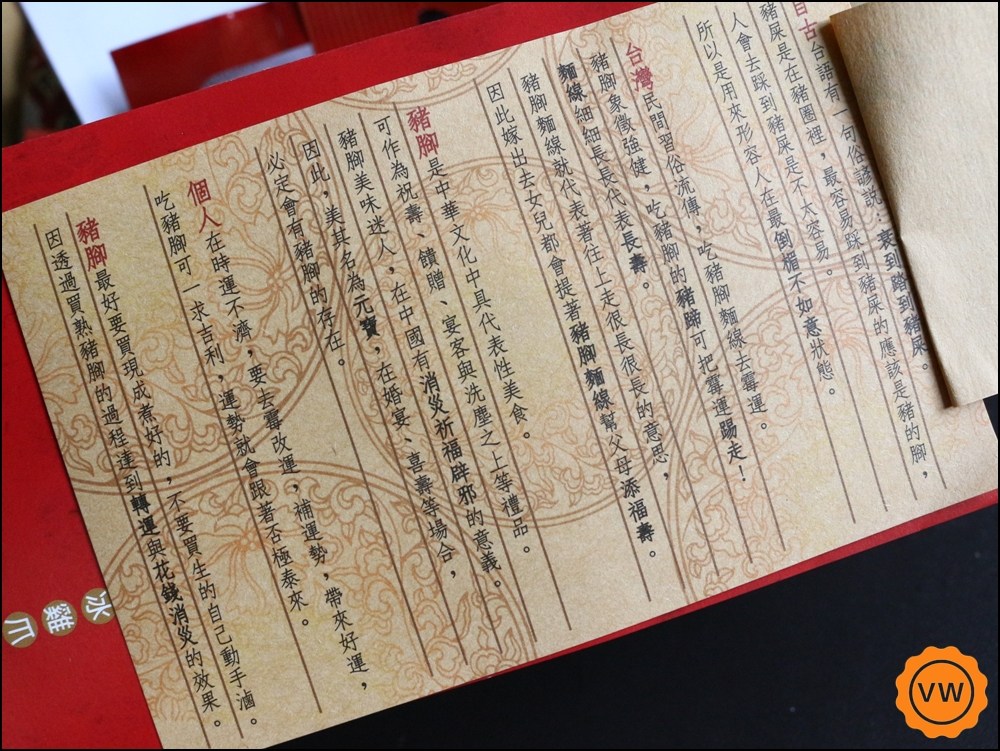 自古台語有一句俗諺說：衰到踏到豬屎。
豬屎是在豬圈裡，最容易踩到豬屎的應該是豬的腳，
人會去踩到豬屎是不太容易。
所以是用來形容人在最倒楣不如意狀態。
台灣民間習俗流傳，吃豬腳麵線去霉運。
豬腳象徵強健，吃豬腳的豬蹄可把霉運踢走！
麵線細細長長代表長壽。
豬腳麵線就代表著往上走很長很長的意思，
因此嫁出去女兒都會提著豬腳麵線幫父母添福壽。
豬腳是中華文化中具代表性美食。
可作為祝壽、饋贈、宴客與洗塵之上等禮品。
豬腳美味迷人，在中國有消災祈福辟邪的意義。
因此，美其名為元寶，在婚宴、喜壽等場合，
必定會有豬腳的存在。
個人在時運不濟，要去霉改運，補運勢，帶來好運，
吃豬腳可一求吉利，運勢就會跟著否極泰來。
豬腳最好要買現成煮好的，不要買生的自己動手滷。
因透過買熟豬腳的過程達到轉運與花錢消災的效果。
冰雞爪
VW